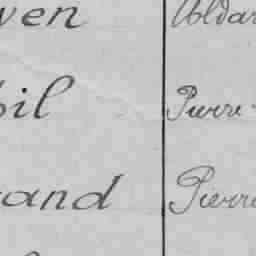 ven Aldar
bil Pierre-
rand Pierre